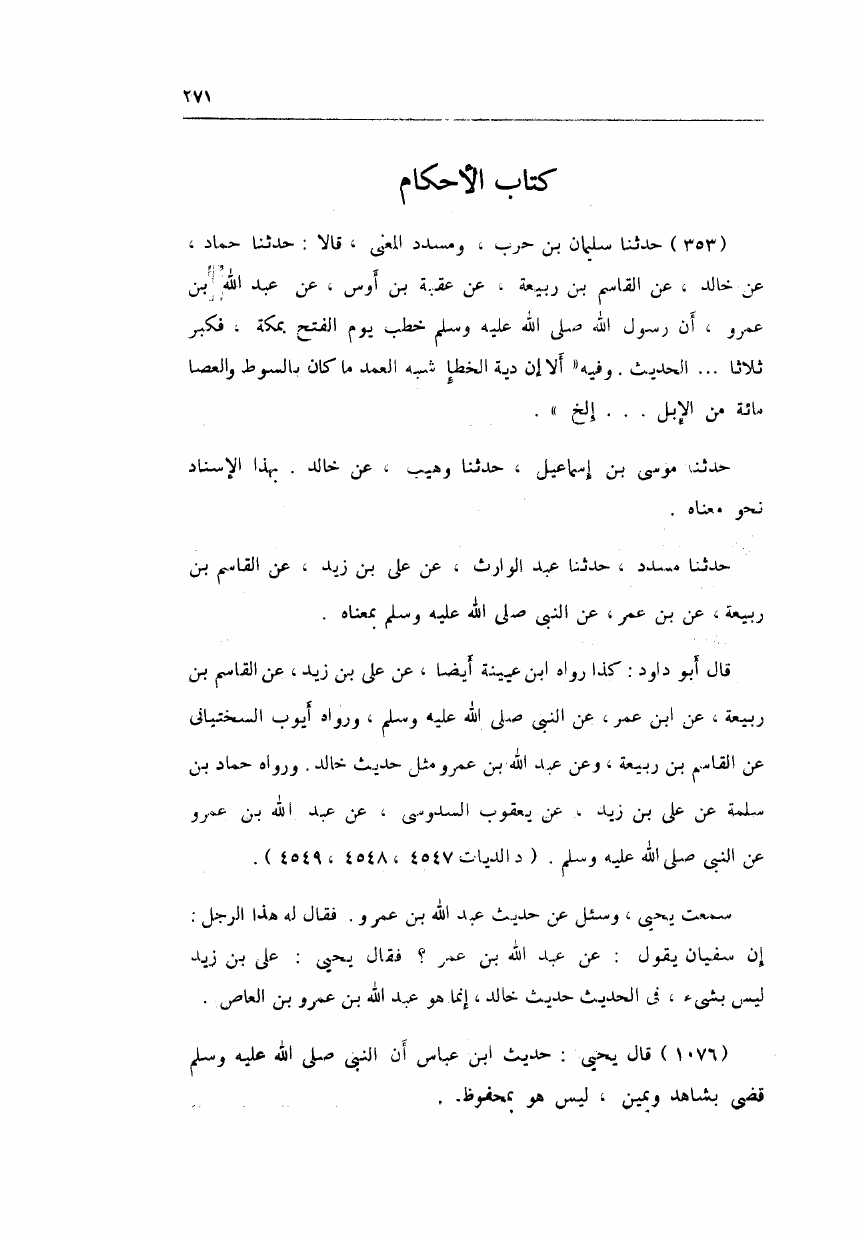 ٢٧١
كتاب الأحكام
( ٣٥٣ ) حدثنا سليمان بن حرب ، ومسدد المعنى ، قالا : حدثنا حماد ،
عن خالد ، عن القاسم بن ربيعة ، عن عقبة بن أوس ، عن عبد الله بن
عمرو ، أن رسول الله صلى الله عليه وسلم خطب يوم الفتح بمكة ، فكبر
ثلاثا ... الحديث . وفيه « ألا إن دية الخطإ شبه العمد ما كان بالسوط والعصا
مائة من الإبل . . . إلخ » .
حدثنا موسى بن إسماعيل ، حدثنا وهيب ، عن خالد . بهذا الإسناد
نحو معناه .
حدثنا مسدد ، حدثنا عبد الوارث ، عن على بن زيد ، عن القاسم بن
ربيعة ، عن بن عمر ، عن النبى صلى الله عليه وسلم بمعناه .
قال أبو داود : كذا رواه ابن عيينة أيضا ، عن على بن زيد ، عن القاسم بن
ربيعة ، عن ابن عمر ، عن النبى صلى الله عليه وسلم ، ورواه أيوب السختيانى
عن القاسم بن ربيعة ، وعن عبد الله بن عمرو مثل حديث خالد . ورواه حماد بن
سلمة عن على بن زيد ، عن يعقوب السدوسى ، عن عبد الله بن عمرو
عن النبى صلى الله عليه وسلم . ( د الديات ٤٥٤٧ ، ٤٥٤٨ ، ٤٥٤٩ ) .
سمعت يحيى ، وسئل عن حديث عبد الله بن عمرو . فقال له هذا الرجل :
إن سفيان يقول : عن عبد الله بن عمر ؟ فقال يحيى : على بن زيد
ليس بشىء ، فى الحديث حديث خالد ، إنما هو عبد الله بن عمرو بن العاص .
( ١٠٧٦ ) قال يحيى : حديث ابن عباس أن النبى صلى الله عليه وسلم
قضى بشاهد ويمين ، ليس هو بمحفوظ .